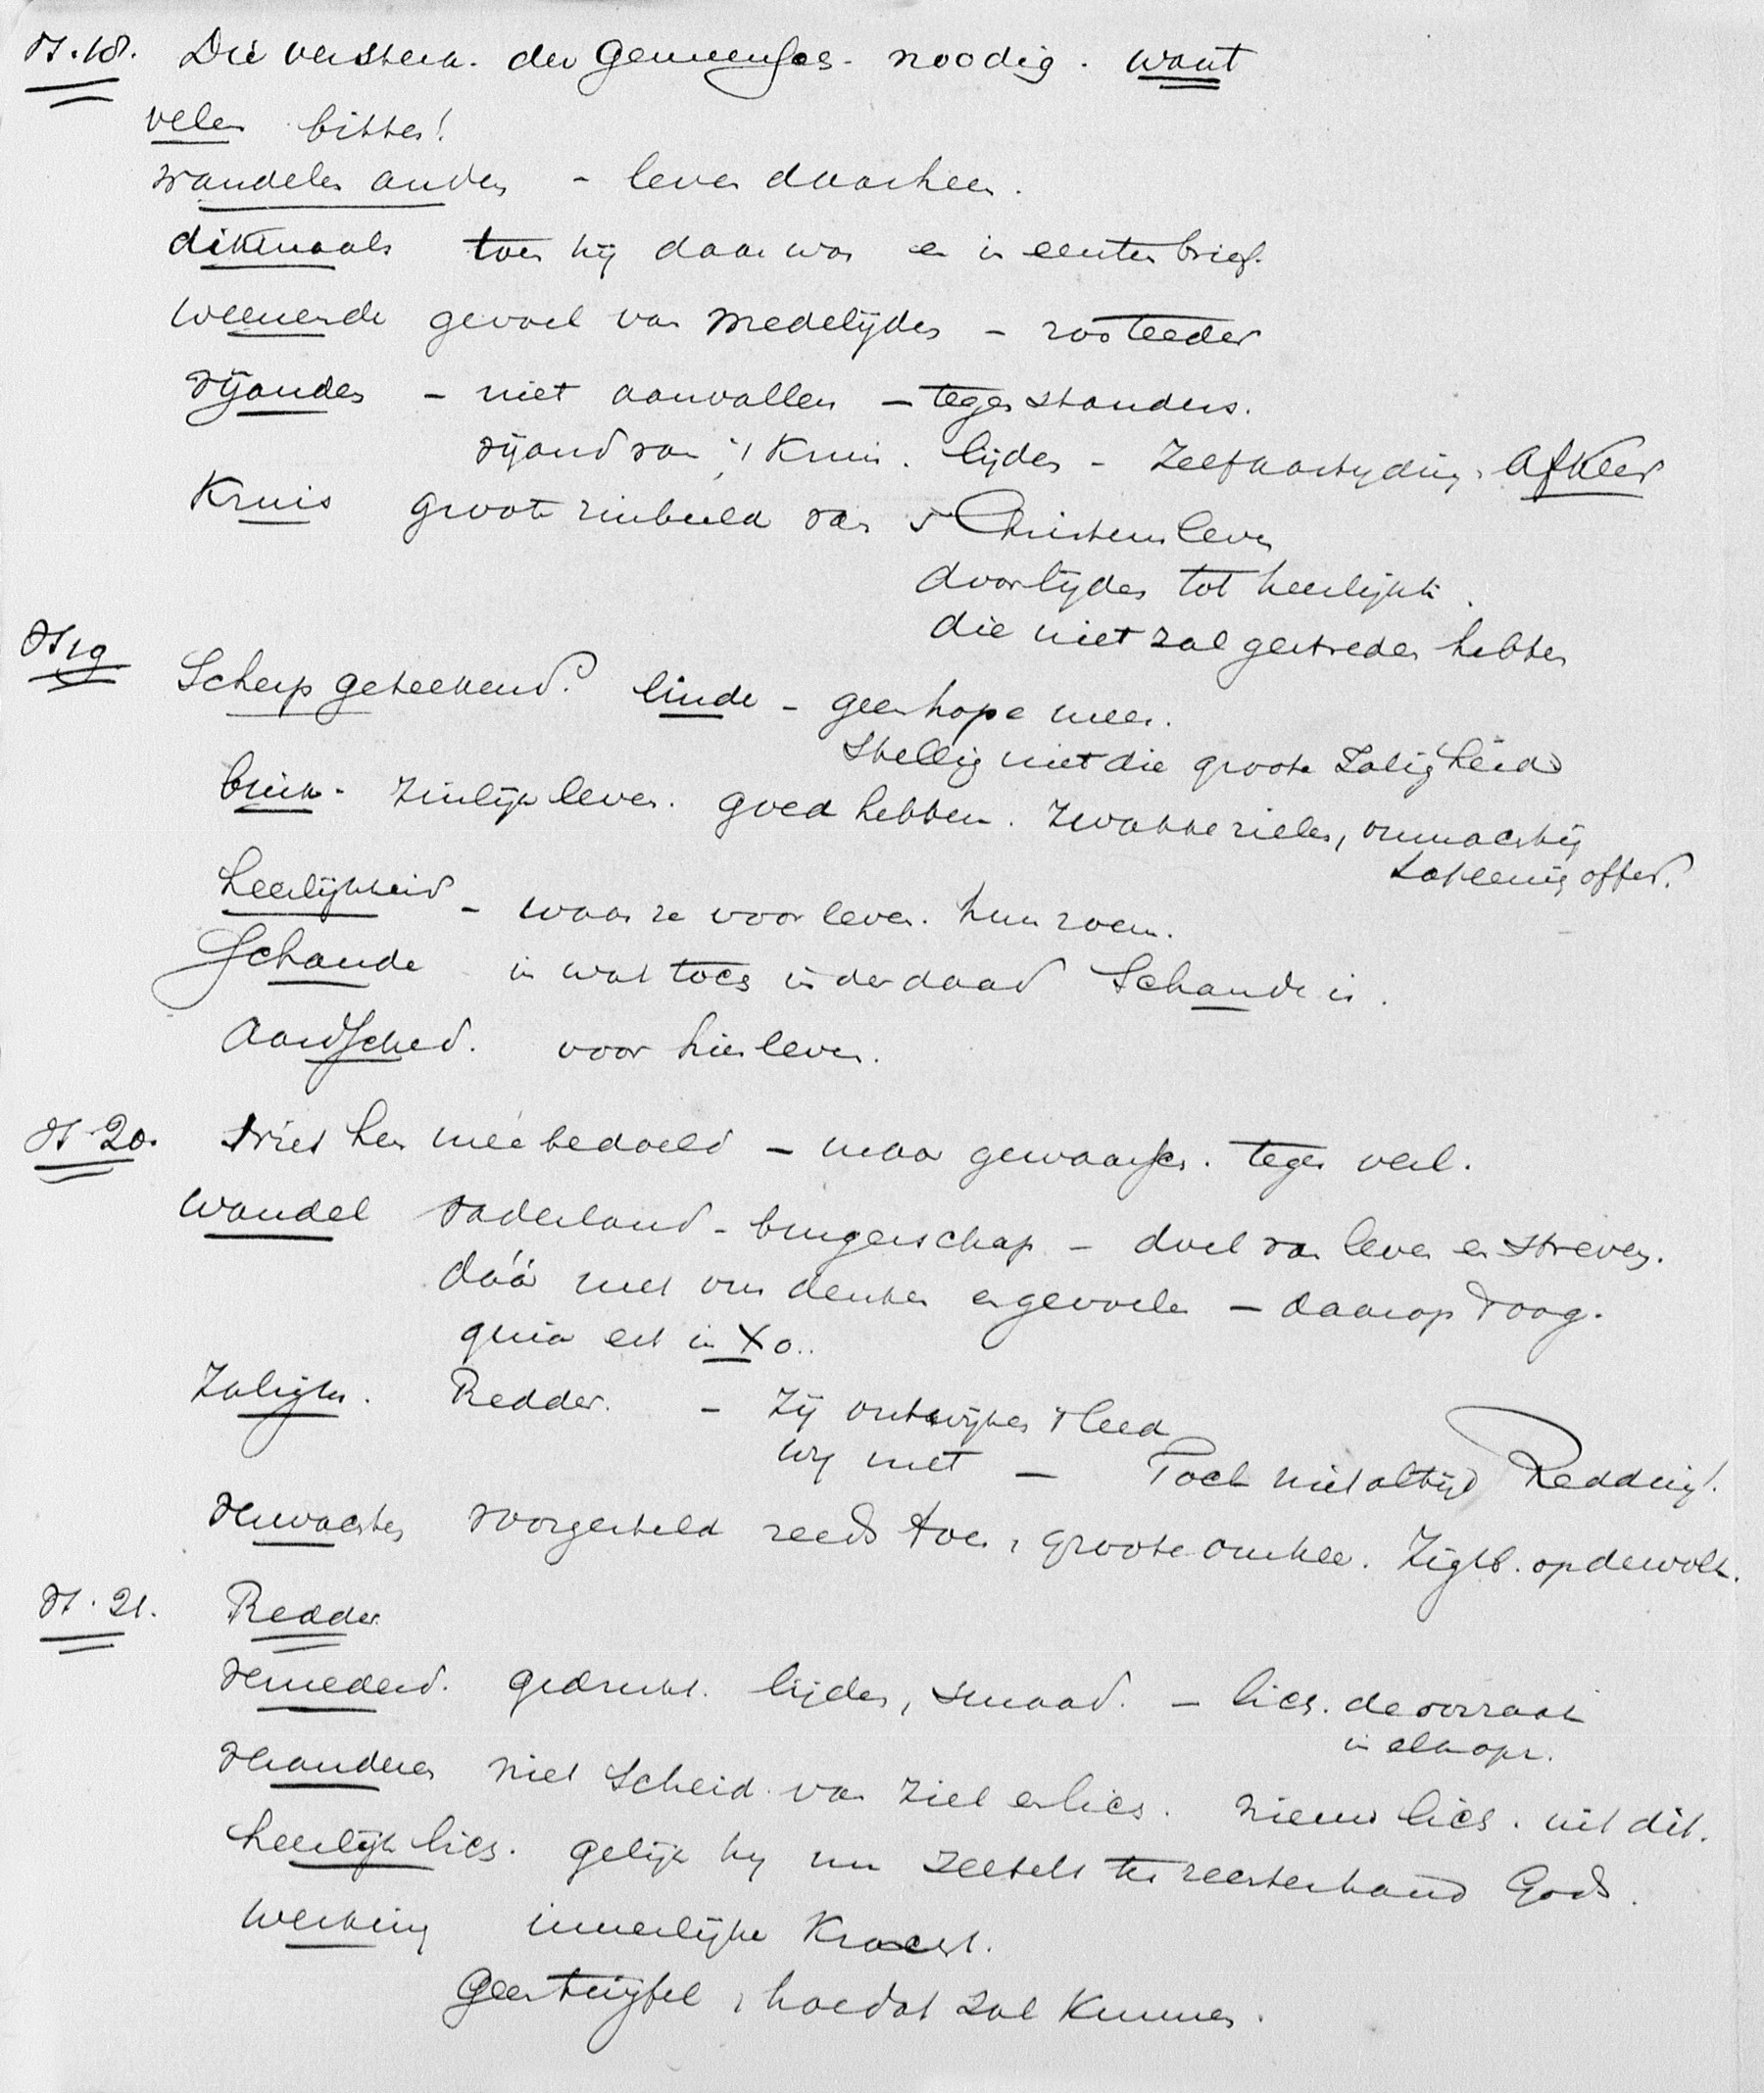 Vs. 18. Die versterk. der gemeensch. noodig. want
velen bitter!
wandelen anders - leven daarheen.
dikmaals toen hij daar was en in eersten brief.
weenende gevoel van medelijden - zoo teeder
vijanden - niet aanvallen - tegenstanders.
vijand van 't Kruis. lijden - Zelfkastijding. afkeer
Kruis groote zinbeeld van 't Christenleven
door lijden tot heerlijkh.
die niet zal gestreden hebben
Vs 19 Scherp geteekend. einde - geen hope meer.
Stellig niet die groote Zaligheid
buik. Zinlijk leven. goed hebben. Zwakke zielen, onmachtig
tot eenig offer.
heerlijkheid - waar ze voor leven. hun roem.
Schande in wat toch inderdaad Schande is.
aardsched. voor hier leven.
Vs 20. Niet hen meê bedoeld - maar gewaarsch. tegen verl.
Wandel vaderland - burgerschap - doel van leven en streven.
dáár met ons denken en gevoelen - daarop 't oog.
quia est in Xo..
Zaligm. Redder. - Zij ontwijken 't leed
wij niet - Toch niet altijd Redding!
verwachten voorgesteld reeds toen, groote omkeer. Zigtb. op de wolk.
Vs. 21. Redder
vernederd. gedrukt. lijden, smaad. - lich. de oorzaak
in elk opz.
veranderen niet scheid. van ziel en lich. nieuw lich. uit dit.
heerlijk lich. gelijk hij nu zetelt ter rechterhand Gods.
werking innerlijke Kracht.
Geen twijfel, hoe dat zal kunnen.